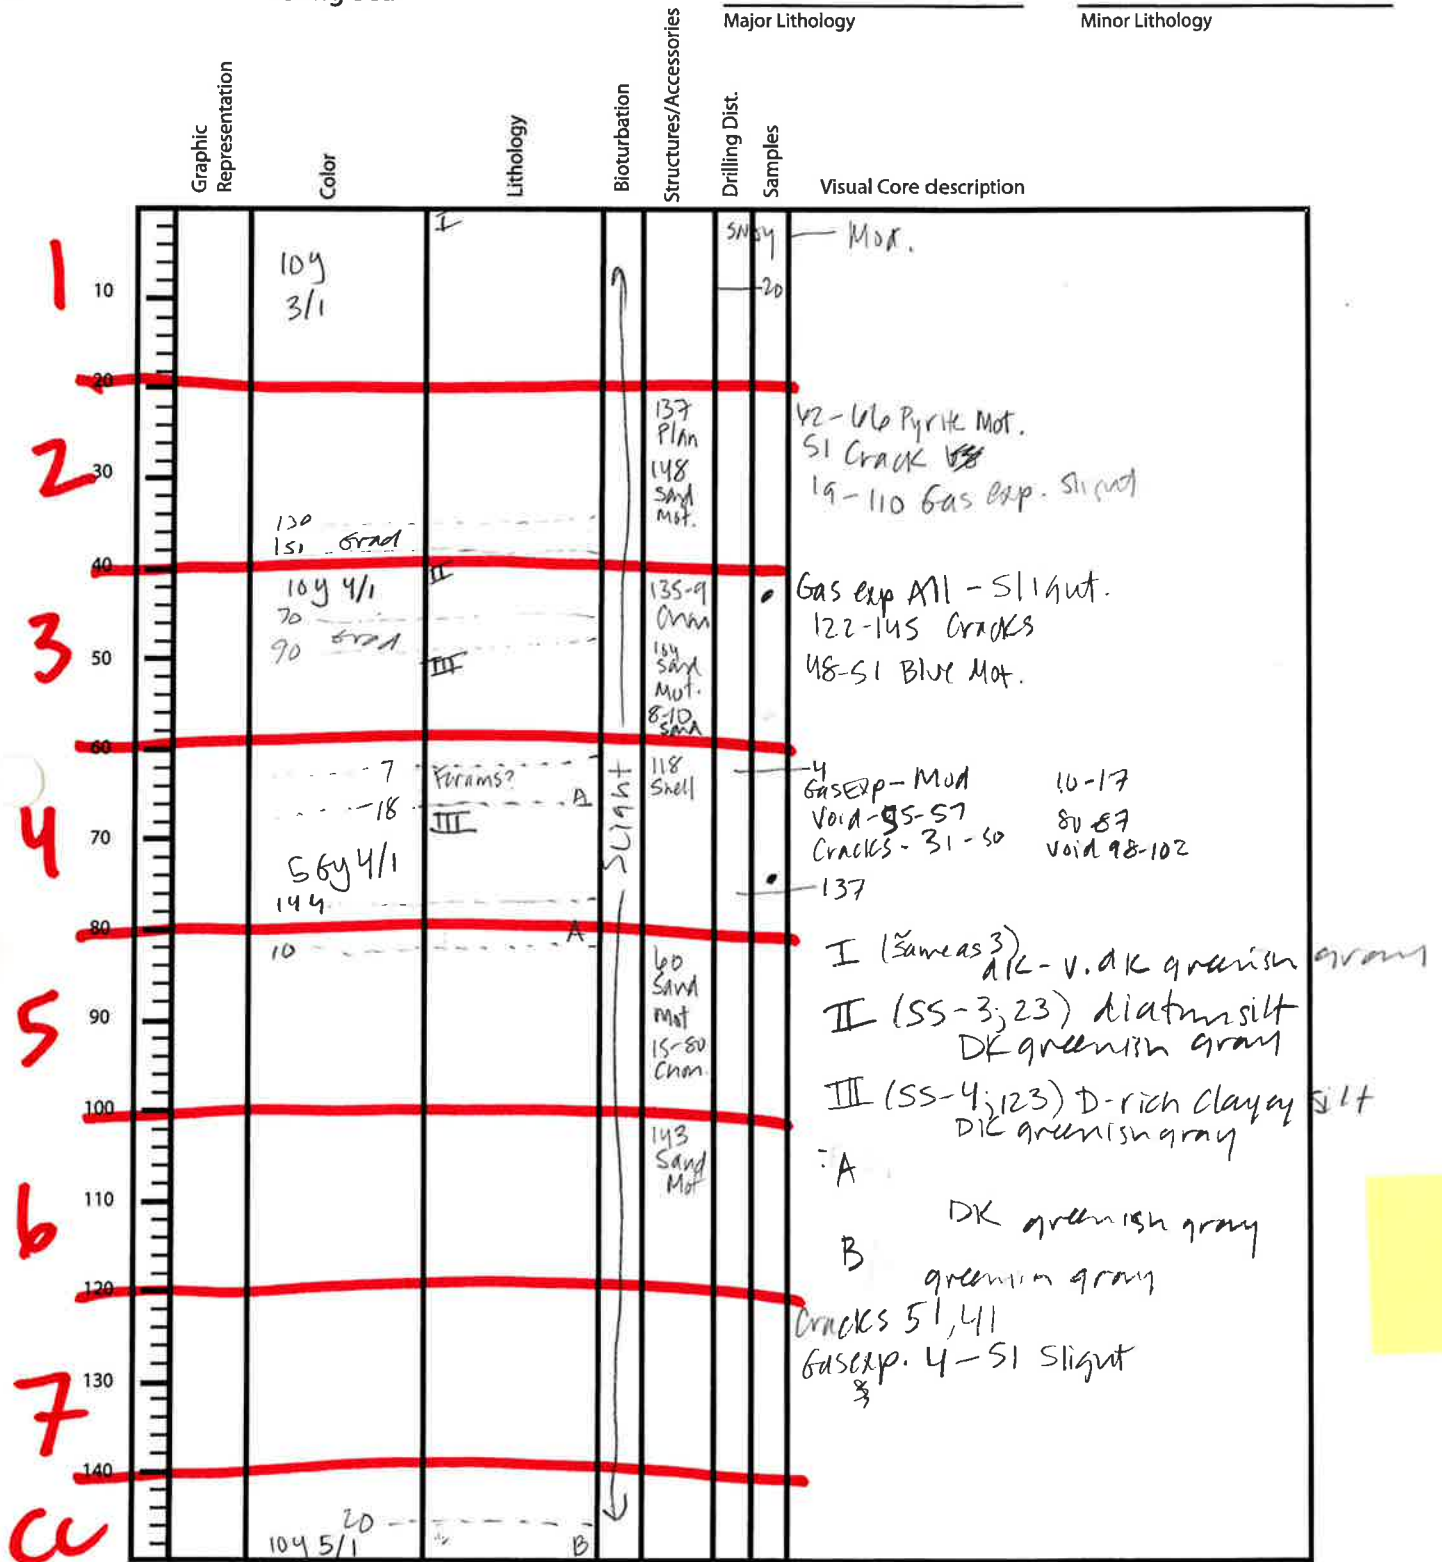 Major Lithology
Minor Lithology
Graphic
Representation
Color
Lithology
Bioturbation
Structures/Accessories
Drilling Dist.
Samples
Visual Core description
1
10
10Y
3/1
I
Mod.
20
20
2
30
130
151 Grad
137
Plan
148
Sand
Mot.
42-66 Pyrite Mot.
51 Crack
19-110 Gas exp. Slight
40
3
50
10Y 4/1
70
Grad
90
II
III
135-9
Chon
104
Sand
Mot.
8-10
Sand
Gas exp All - Slight.
122-145 Cracks
48-51 Blue Mot.
60
4
70
7
18
5GY 4/1
144
Forams?
A
III
Slight
118
Shell
4
Gas Exp - Mod 10-17
Void - 55-57 80-87
Cracks - 31-50 Void 98-102
137
80
5
90
10
A
60
Sand
Mot
15-80
Chon.
I (Same as 3)
dk - v. dk greenish gray
II (SS-3; 23) diatom silt
DK greenish gray
100
III (SS-4; 123) D-rich Clayey silt
DK greenish gray
6
110
143
Sand
Mot
A
DK greenish gray
B
greenish gray
120
7
130
Cracks 51, 41
Gas exp. 4-51 Slight
140
CC
20
10Y 5/1
B